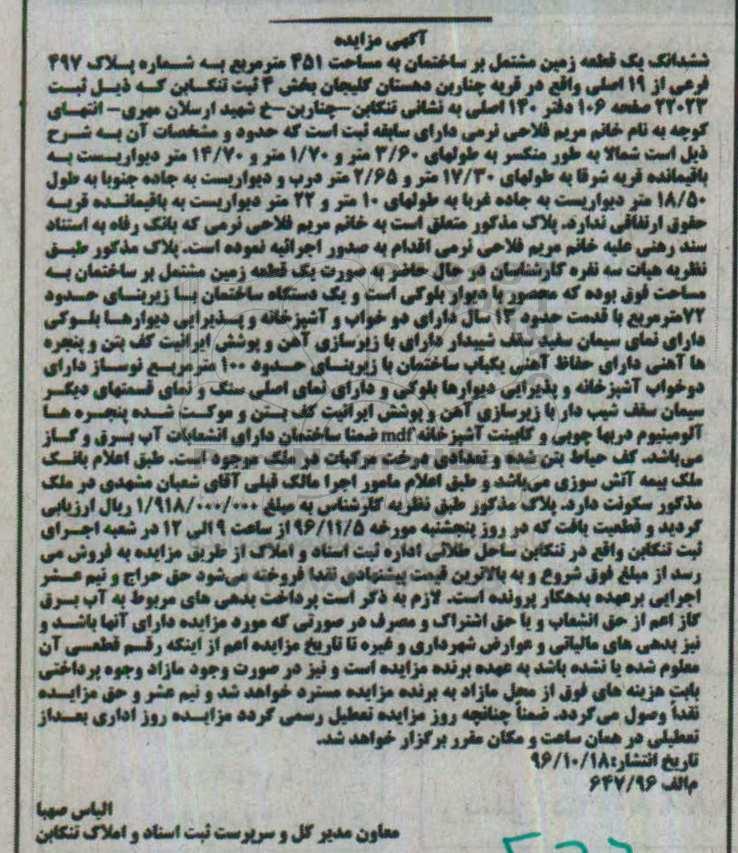 آگهی مزایده
ششدانگ یک قطعه زمین مشتمل بر ساختمان به مساحت ۴۵۱ مترمربع به شماره پلاک ۴۹۷
فرعی از ۱۹ اصلی واقع در قریه چنارین دهستان گلیجان بخش ۴ ثبت تنکابن که ذیل ثبت
۲۲۰۲۳ صفحه ۱۰۶ دفتر ۱۴۰ اصلی به نشانی تنکابن-چناربن-خ شهید ارسلان مهری- انتهای
کوچه به نام خانم مریم فلاحی نرمی دارای سابقه ثبت است که حدود و مشخصات آن به شرح
ذیل است شمالا به طور منکسر به طولهای ۳/۶۰ متر و ۱/۷۰ متر و ۱۴/۷۰ متر دیواریست به
باقیمانده قریه شرقا به طولهای ۱۷/۳۰ متر و ۲/۶۵ متر درب و دیواریست به جاده جنوبا به طول
۱۸/۵۰ متر دیواریست به جاده غربا به طولهای ۱۰ متر و ۲۲ متر دیواریست به باقیمانده قریه
حقوق ارتفاقی ندارد. پلاک مذکور متعلق است به خانم مریم فلاحی نرمی که بانک رفاه به استناد
سند رهنی علیه خانم مریم فلاحی نرمی اقدام به صدور اجرائیه نموده است. پلاک مذکور طبق
نظریه هیات سه نفره کارشناسان در حال حاضر به صورت یک قطعه زمین مشتمل بر ساختمان به
مساحت فوق بوده که محصور با دیوار بلوکی است و یک دستگاه ساختمان با زیربنای حدود
۷۲مترمربع با قدمت حدود ۱۳ سال دارای دو خواب و آشپزخانه و پذیرایی دیوارها بلوکی
دارای نمای سیمان سفید سقف شیبدار دارای با زیرسازی آهن و پوشش ایرانیت کف بتن و پنجره
ها آهنی دارای حفاظ آهنی یکباب ساختمان با زیربنای حدود ۱۰۰ مترمربع نوساز دارای
دوخواب آشپزخانه و پذیرایی دیوارها بلوکی و دارای نمای اصلی سنگ و نمای قسمتهای دیگر
سیمان سقف شیب دار با زیرسازی آهن و پوشش ایرانیت کف بتن و موکت شده پنجره ها
آلومینیوم دربها چوبی و کابینت آشپزخانه mdf ضمنا ساختمان دارای انشعابات آب برق و گاز
می‌باشد. کف حیاط بتن شده و تعدادی درخت مرکبات در ملک موجود است. طبق اعلام بانک
ملک بیمه آتش سوزی می‌باشد و طبق اعلام مامور اجرا مالک قبلی آقای شعبان مشهدی در ملک
مذکور سکونت دارد. پلاک مذکور طبق نظریه کارشناس به مبلغ ۱/۹۱۸/۰۰۰/۰۰۰ ریال ارزیابی
گردید و قطعیت یافت که در روز پنجشنبه مورخه ۹۶/۱۱/۵ از ساعت ۹ الی ۱۲ در شعبه اجرای
ثبت تنکابن واقع در تنکابن ساحل طلائی اداره ثبت اسناد و املاک از طریق مزایده به فروش می
رسد از مبلغ فوق شروع و به بالاترین قیمت پیشنهادی نقدا فروخته می‌شود حق حراج و نیم عشر
اجرایی برعهده بدهکار پرونده است. لازم به ذکر است پرداخت بدهی های مربوط به آب برق
گاز اعم از حق انشعاب و یا حق اشتراک و مصرف در صورتی که مورد مزایده دارای آنها باشد و
نیز بدهی های مالیاتی و عوارض شهرداری و غیره تا تاریخ مزایده اعم از اینکه رقم قطعی آن
معلوم شده یا نشده باشد به عهده برنده مزایده است و نیز در صورت وجود مازاد وجوه پرداختی
بابت هزینه های فوق از محل مازاد به برنده مزایده مسترد خواهد شد و نیم عشر و حق مزایده
نقداً وصول می‌گردد. ضمناً چنانچه روز مزایده تعطیل رسمی گردد مزایده روز اداری بعداز
تعطیلی در همان ساعت و مکان مقرر برگزار خواهد شد.
تاریخ انتشار:۹۶/۱۰/۱۸
م‌الف ۶۴۷/۹۶
الیاس صهبا
معاون مدیر کل و سرپرست ثبت اسناد و املاک تنکابن